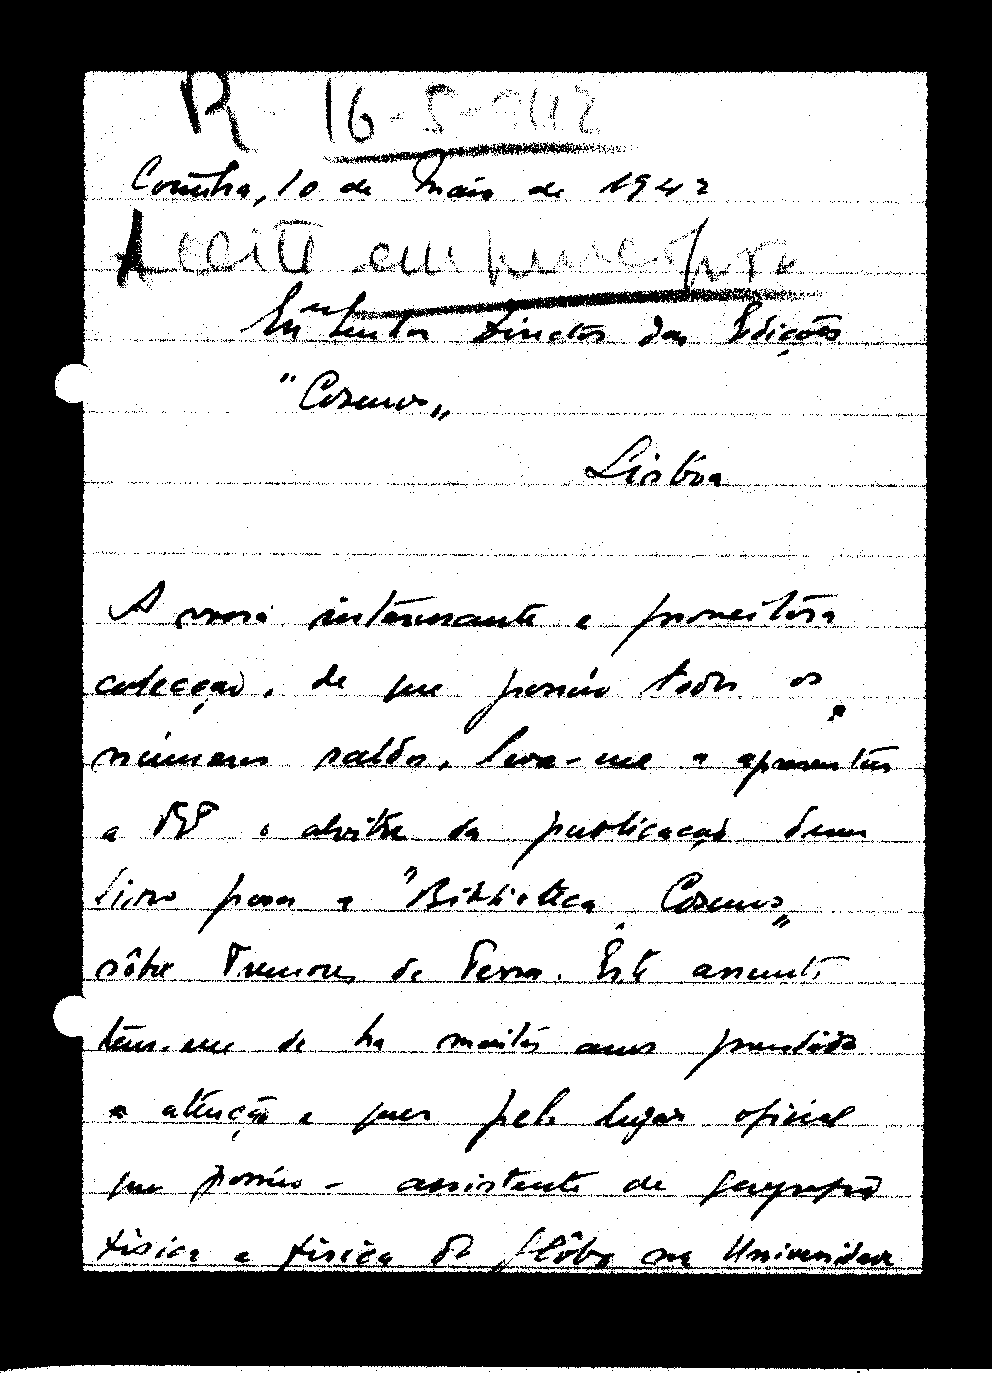 R 16-5-942
Coimbra, 10 de Maio de 1942
Aceite em princípio
Exmo Senhor Director das Edições
"Cosmos"
Lisboa
A vossa interessante e proveitosa
colecção, de que possúo todos os
números saídos, leva-me a apresentar
a V. o alvitre da publicação dum
livro para a "Biblioteca Cosmos"
sôbre Tremores de Terra. Êste assunto
tem-me de ha muitos anos prendido
a atenção e quer pelo lugar oficial
que possúo - assistente de geografia
física e física do glôbo na Universidade